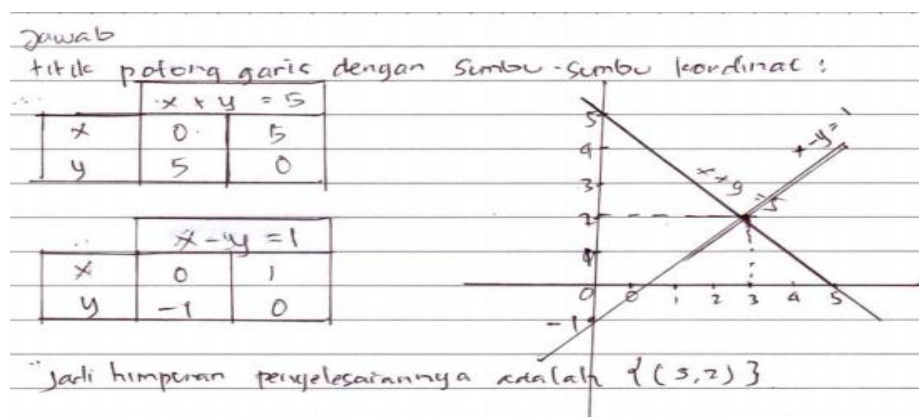 Jawab
titik potong garis dengan Sumbu-Sumbu kordinat :
x + y = 5
x 0 5
y 5 0
x - y = 1
x 0 1
y -1 0
5
4
3
2
1
0
-1
0 1 2 3 4 5
x + y = 5
x - y = 1
Jadi himpunan penyelesaiannya adalah {(3,2)}